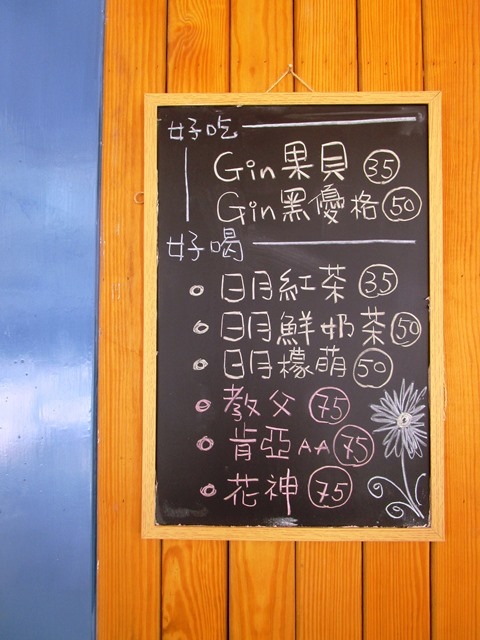 好吃
Gin果貝 35
Gin黑優格 50
好喝
日月紅茶 35
日月鮮奶茶 50
日月檬萌 50
教父 75
肯亞AA 75
花神 75